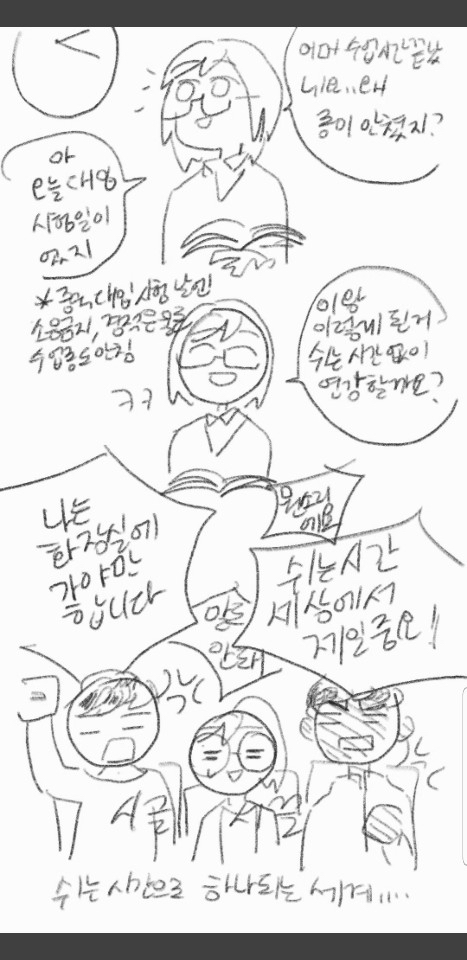 어머 수업시간 끝났
네요.. 왜
종이 안쳤지?
아
오늘 대입
시험일이
었지
* 중국 대입 시험 날엔
소음금지, 경적은 물론
수업종도 안침
이왕
이렇게 된거
쉬는 시간 없이
연강할까요?
ㅋㅋ
뭔소리
에요
나는
화장실에
가야만
합니다
쉬는시간
세상에서
제일중요!
말도
안돼
시끌
시끌
쉬는 시간으로 하나되는 세계....